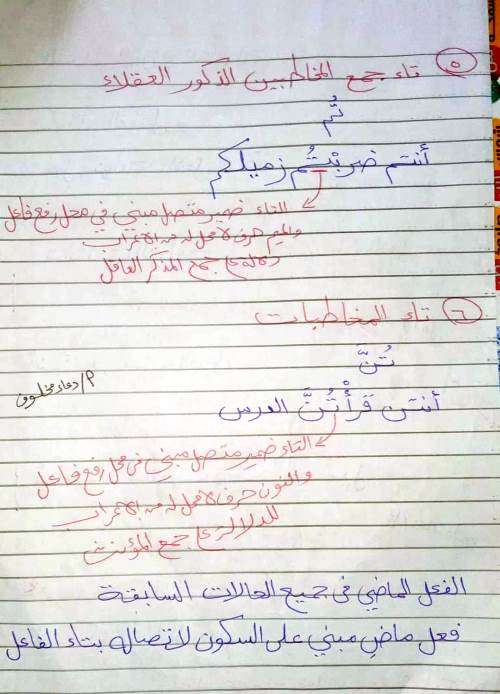 ٥ تاء جمع المخاطبين الذكور العقلاء
تُم
أنتم ضربْتُم زميلكم
التاء ضمير متصل مبني في محل رفع فاعل
والميم حرف لا محل له من الإعراب
دلالة على جمع المذكر العاقل
٦ تاء المخاطبات
تُنَّ
م/دعاء مخلوف
أنتن قَرأْتُنَّ الدرس
التاء ضمير متصل مبني في محل رفع فاعل
والنون حرف لا محل له من الإعراب
للدلالة على جمع المؤنث
الفعل الماضي في جميع الحالات السابقة
فعل ماضٍ مبني على السكون لاتصاله بتاء الفاعل